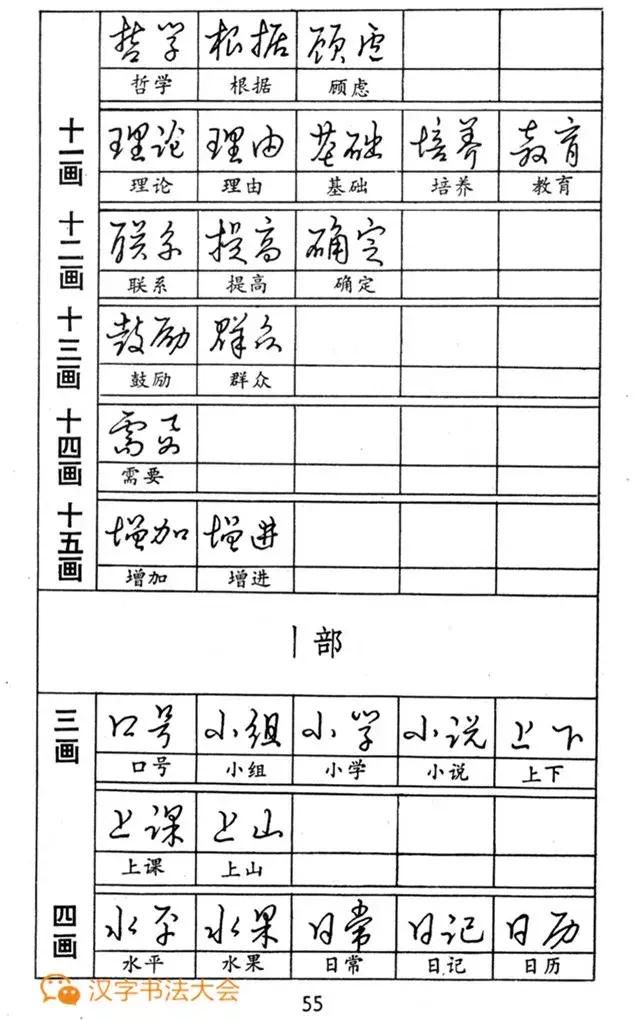 哲学 根据 顾虑
哲学 根据 顾虑
十一画
理论 理由 基础 培养 教育
理论 理由 基础 培养 教育
十二画
联系 提高 确定
联系 提高 确定
十三画
鼓励 群众
鼓励 群众
十四画
需要
需要
十五画
增加 增进
增加 增进
丨部
三画
口号 小组 小学 小说 上下
口号 小组 小学 小说 上下
上课 上山
上课 上山
四画
水平 水果 日常 日记 日历
水平 水果 日常 日记 日历
汉字书法大会
55